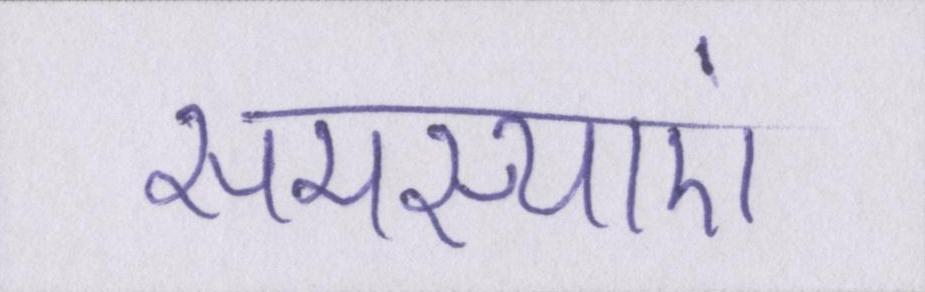 समस्याएं